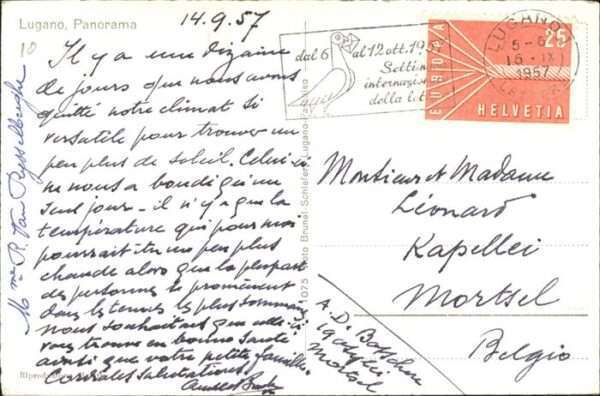 Lugano, Panorama
14.9.57
10
Il y a une dizaine
de jours que nous avons
quitté notre climat si
versatile pour trouver un
peu plus de soleil. Celui-ci
ne nous a boudé qu'un
seul jour - il n'y a que la
température qui pour moi
pourrait être un peu plus
chaude alors que la plupart
des personnes se promènent
dans les tenues les plus sommaires
nous souhaitons que celle-ci
vous trouve en bonne santé
ainsi que votre petite famille.
Cordiales salutations
Mme R. Van Rysselberghe
dal 6 al 12 ott. 195
Settim
internazion
della let
LUGANO
5-6
16.IX
1957
EUROPA
25
HELVETIA
1075 Foto Brunel Schlaferli, Lugano-Paradiso
Monsieur et Madame
Léonard
Kapellei
Mortsel
Belgio
A. De
19
Mortsel